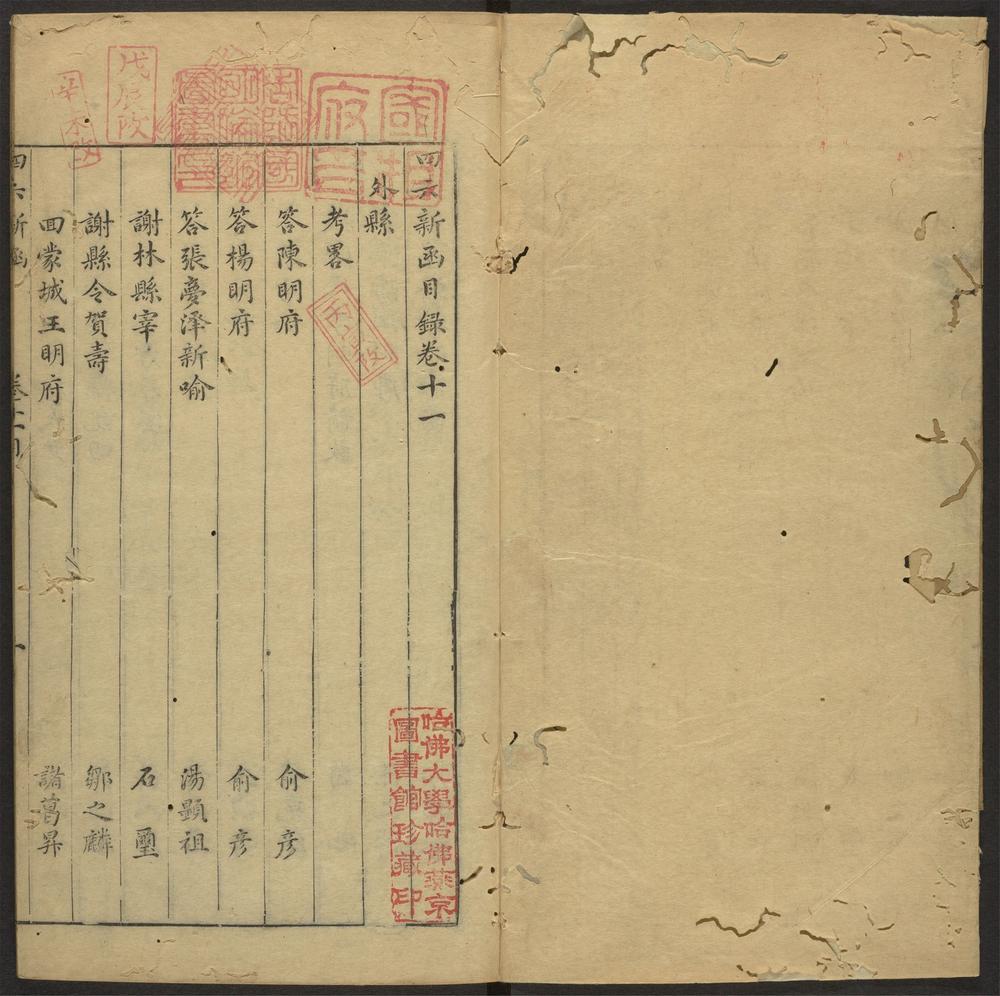 四六新函目録卷十一
外縣
考畧
答陳明府 俞彦
答楊明府 俞彦
答張夢澤新喻 湯顯祖
謝林縣宰 石璽
謝縣令賀壽 鄒之麟
回蒙城王明府 諸葛昇
四六新函
一
戊辰改
哈佛大學哈佛燕京
圖書館珍藏印